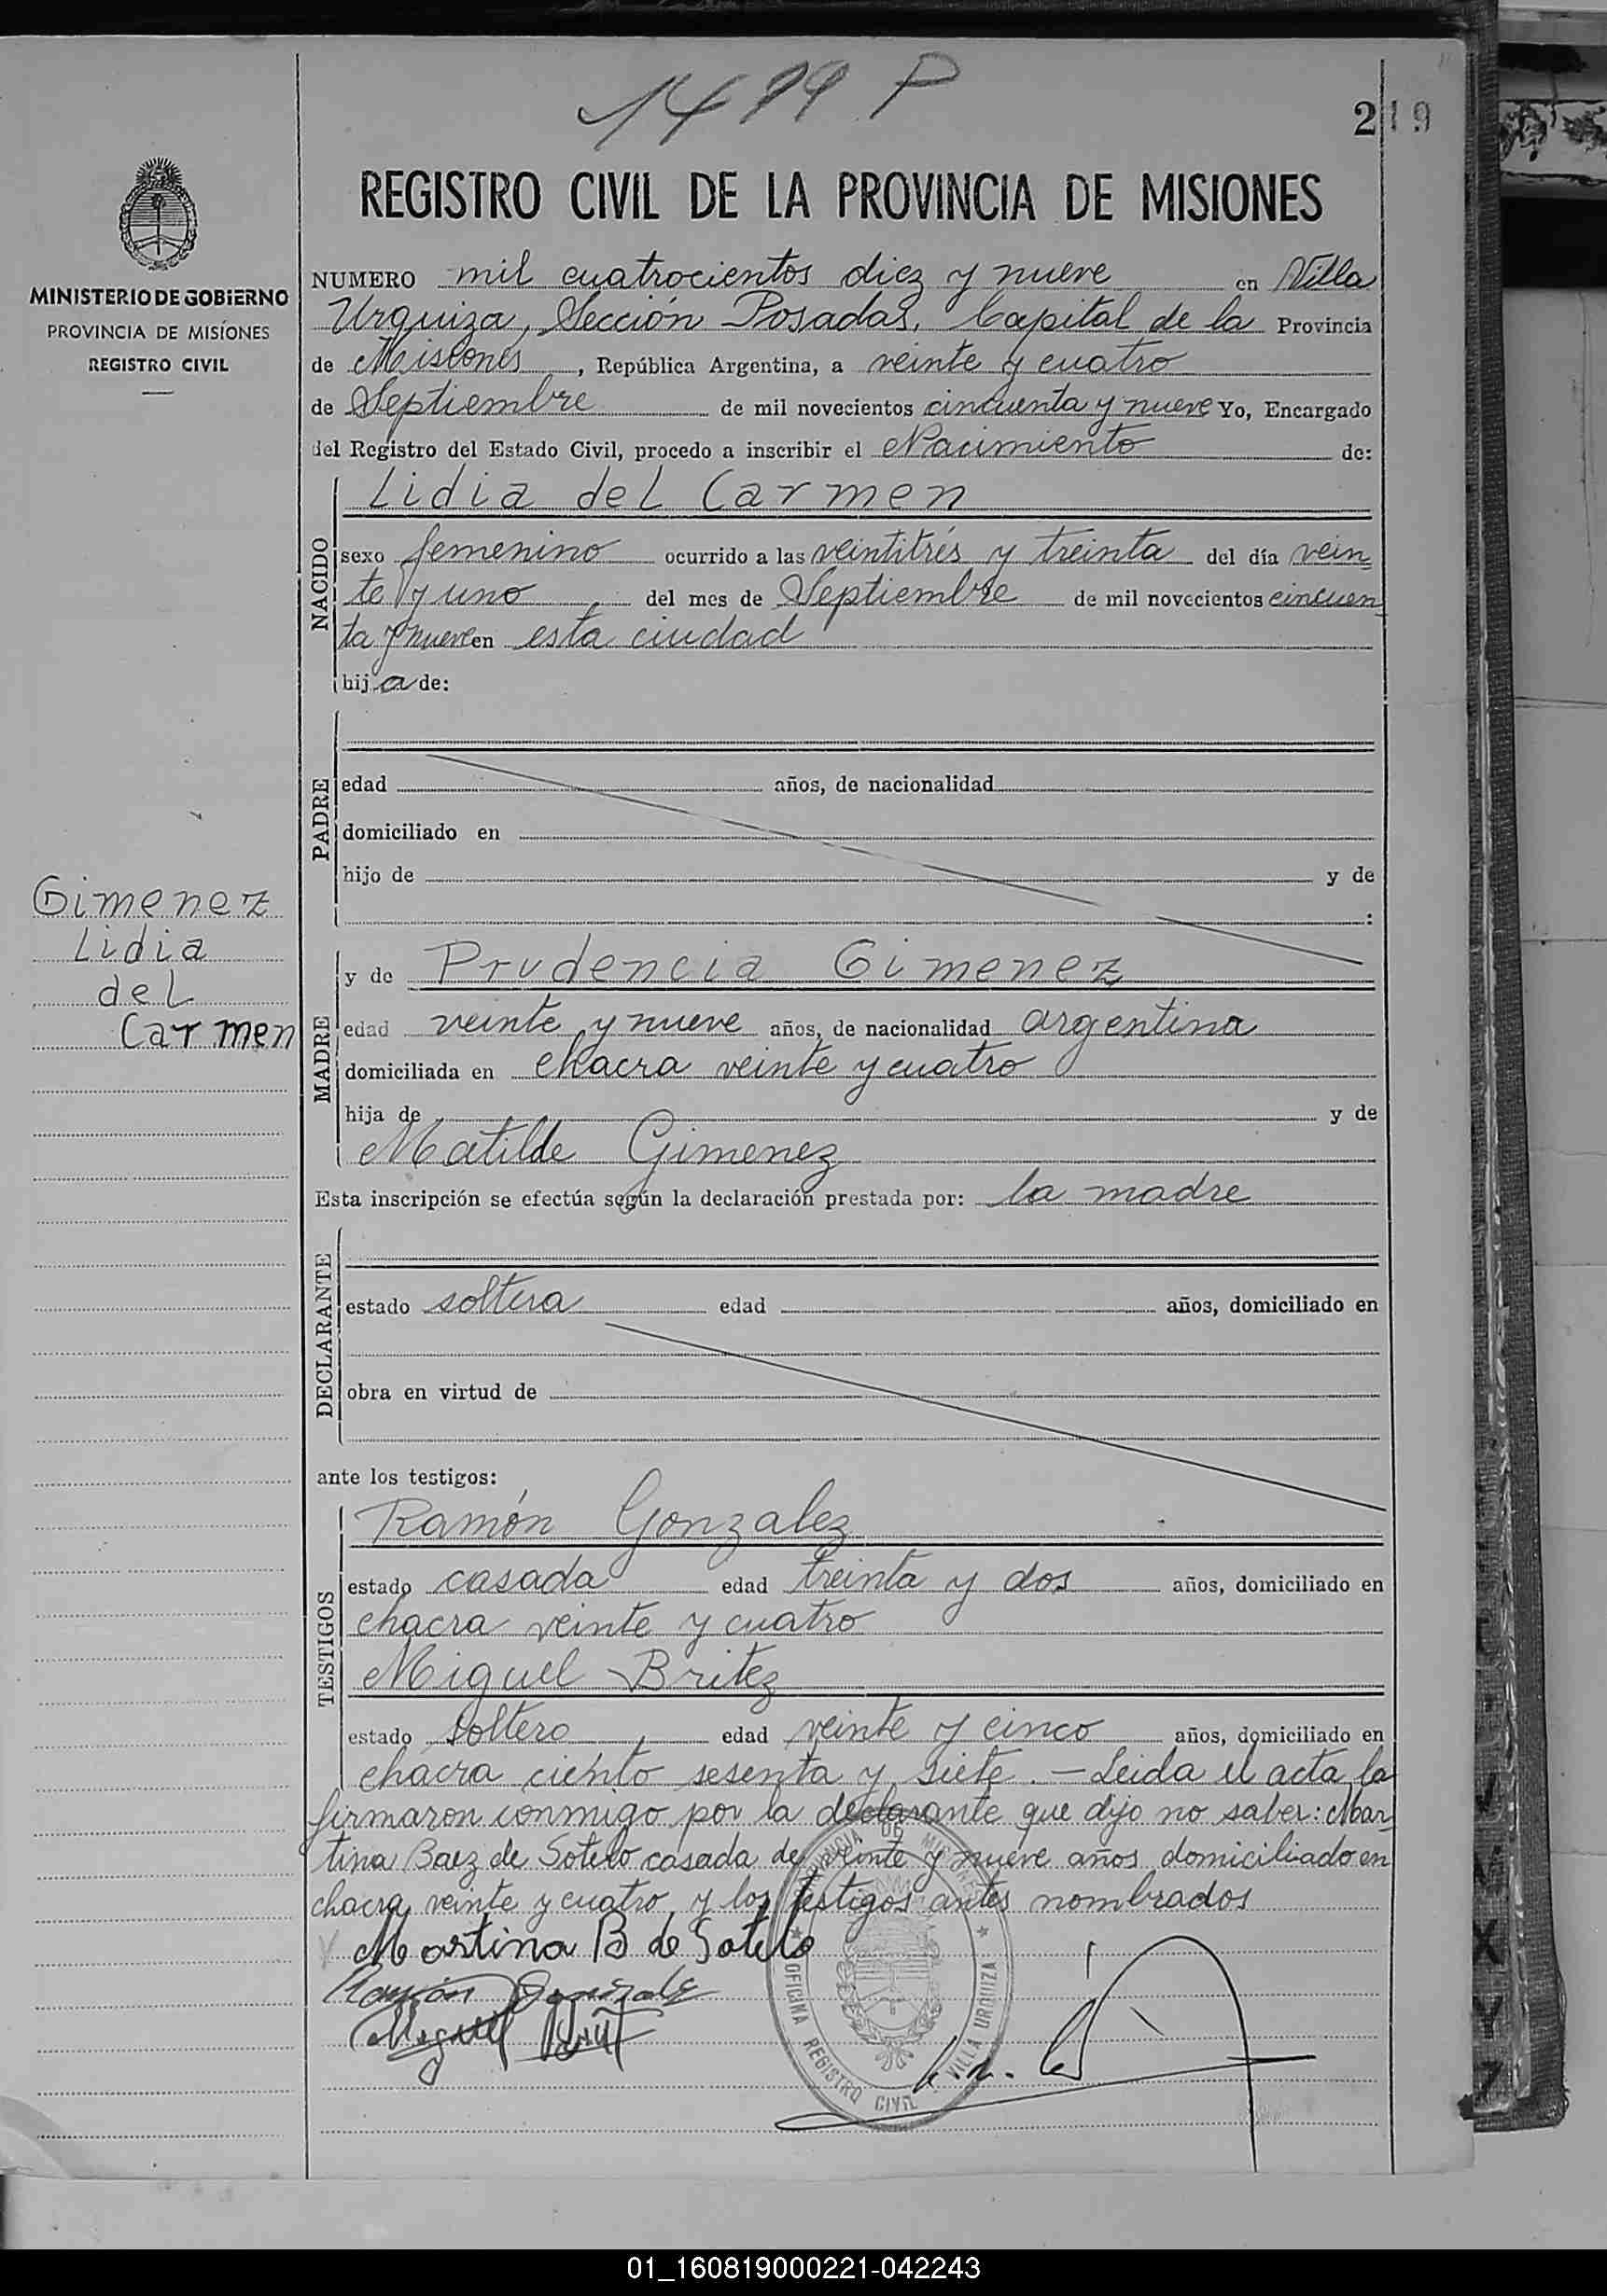 1499 P
219
REGISTRO CIVIL DE LA PROVINCIA DE MISIONES
MINISTERIO DE GOBIERNO
PROVINCIA DE MISIONES
REGISTRO CIVIL
NUMERO mil cuatrocientos diez y nueve en Villa
Urquiza, Sección Posadas, Capital de la Provincia
de Misiones, República Argentina, a veinte y cuatro
de Septiembre de mil novecientos cincuenta y nueve Yo, Encargado
del Registro del Estado Civil, procedo a inscribir el Nacimiento de:
NACIDO
Lidia del Carmen
sexo femenino ocurrido a las veintitrés y treinta del día vein
te y uno del mes de Septiembre de mil novecientos cincuen
ta y nueve en esta ciudad
hija de:
PADRE
edad años, de nacionalidad
domiciliado en
hijo de y de
:
Gimenez
Lidia
del
Carmen
MADRE
y de Prudencia Gimenez
edad veinte y nueve años, de nacionalidad argentina
domiciliada en chacra veinte y cuatro
hija de y de
Matilde Gimenez
Esta inscripción se efectúa según la declaración prestada por: la madre
DECLARANTE
estado soltera edad años, domiciliado en
obra en virtud de
ante los testigos:
TESTIGOS
Ramón Gonzalez
estado casada edad treinta y dos años, domiciliado en
chacra veinte y cuatro
Miguel Britez
estado soltero, edad veinte y cinco años, domiciliado en
chacra ciento sesenta y siete.-Leida el acta, la
firmaron conmigo por la declarante que dijo no saber: Mar
tina Baez de Sotelo casada de veinte y nueve años domiciliado en
chacra veinte y cuatro, y los testigos antes nombrados
Martina B de Sotelo
Ramón Gonzalez
Miguel Britez
PROVINCIA DE MISIONES
OFICINA REGISTRO CIVIL VILLA URQUIZA
01_160819000221-042243